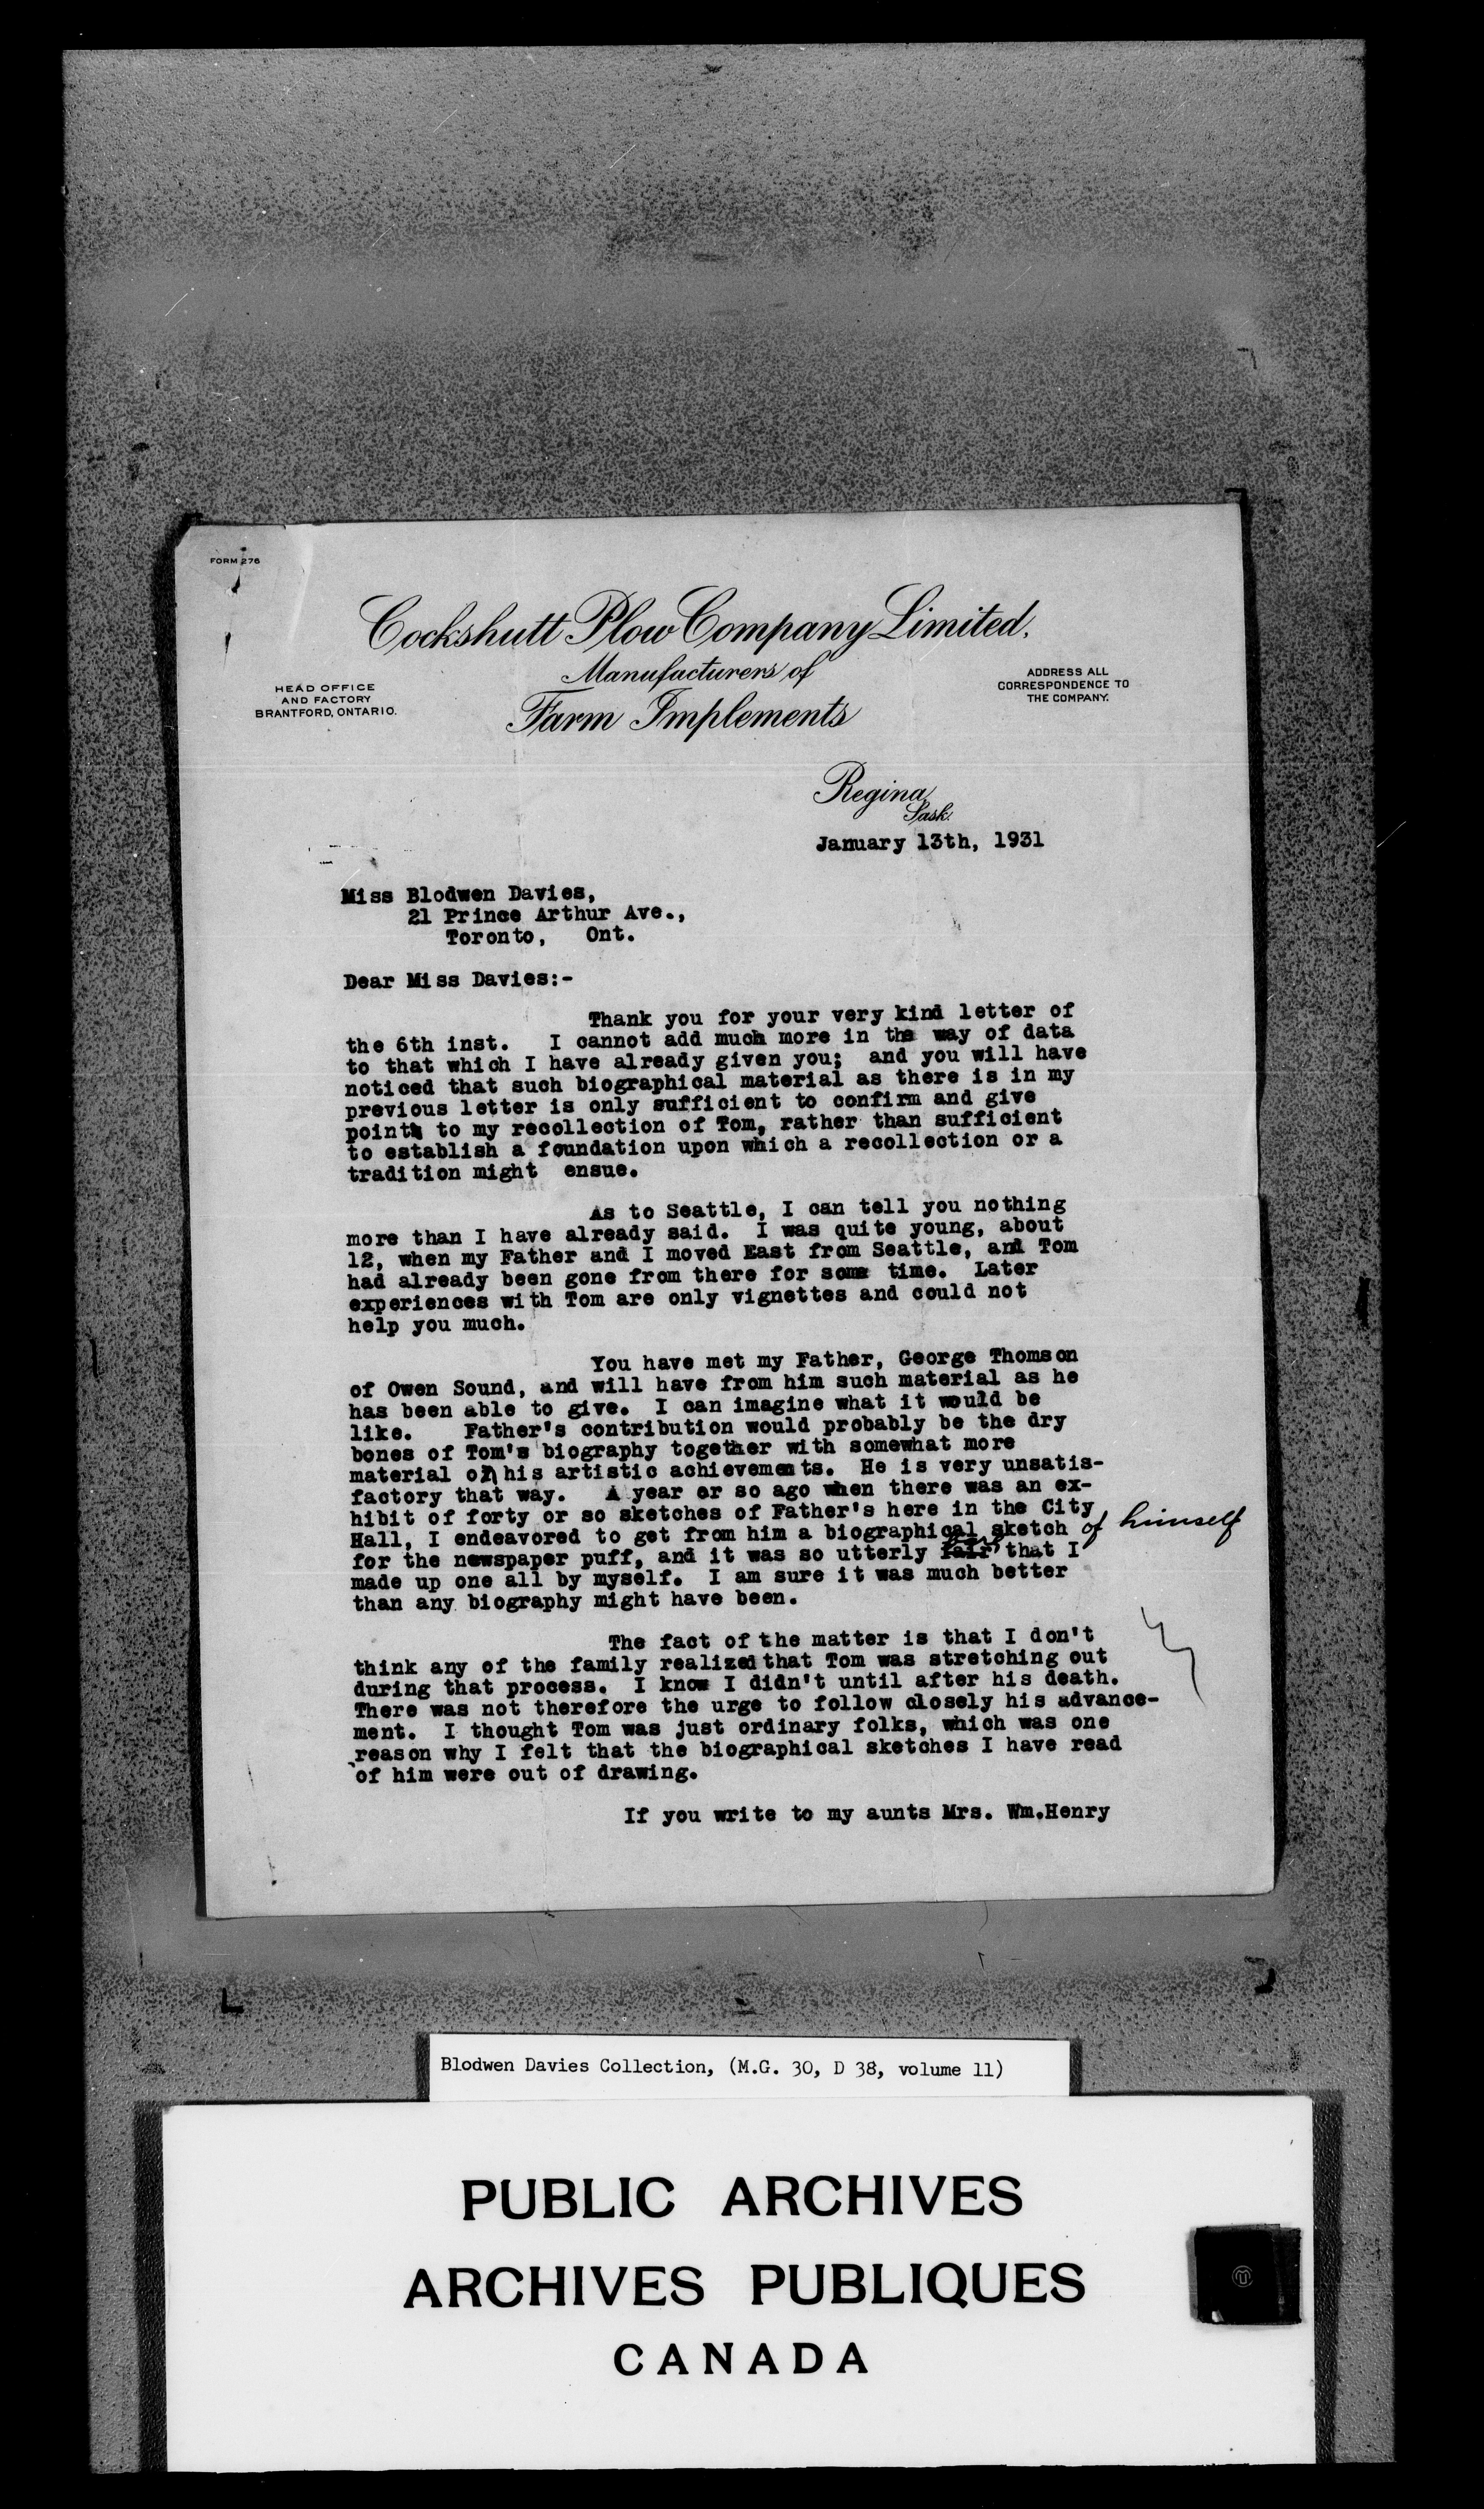 FORM 276
Cockshutt Plow Company Limited.
Manufacturers of
Farm Implements
HEAD OFFICE
AND FACTORY
BRANTFORD, ONTARIO.
ADDRESS ALL
CORRESPONDENCE TO
THE COMPANY.
Regina,
Sask.
January 13th, 1931
Miss Blodwen Davies,
21 Prince Arthur Ave.,
Toronto, Ont.
Dear Miss Davies:-
Thank you for your very kind letter of
the 6th inst. I cannot add much more in the way of data
to that which I have already given you; and you will have
noticed that such biographical material as there is in my
previous letter is only sufficient to confirm and give
point to my recollection of Tom, rather than sufficient
to establish a foundation upon which a recollection or a
tradition might ensue.
As to Seattle, I can tell you nothing
more than I have already said. I was quite young, about
12, when my Father and I moved East from Seattle, and Tom
had already been gone from there for some time. Later
experiences with Tom are only vignettes and could not
help you much.
You have met my Father, George Thomson
of Owen Sound, and will have from him such material as he
has been able to give. I can imagine what it would be
like. Father's contribution would probably be the dry
bones of Tom's biography together with somewhat more
material on his artistic achievements. He is very unsatis-
factory that way. A year or so ago when there was an ex-
hibit of forty or so sketches of Father's here in the City
Hall, I endeavored to get from him a biographical sketch of himself
for the newspaper puff, and it was so utterly fair that I
made up one all by myself. I am sure it was much better
than any biography might have been.
The fact of the matter is that I don't
think any of the family realized that Tom was stretching out
during that process. I know I didn't until after his death.
There was not therefore the urge to follow closely his advance-
ment. I thought Tom was just ordinary folks, which was one
reason why I felt that the biographical sketches I have read
of him were out of drawing.
If you write to my aunts Mrs. Wm.Henry
Blodwen Davies Collection, (M.G. 30, D 38, volume 11)
PUBLIC ARCHIVES
ARCHIVES PUBLIQUES
CANADA